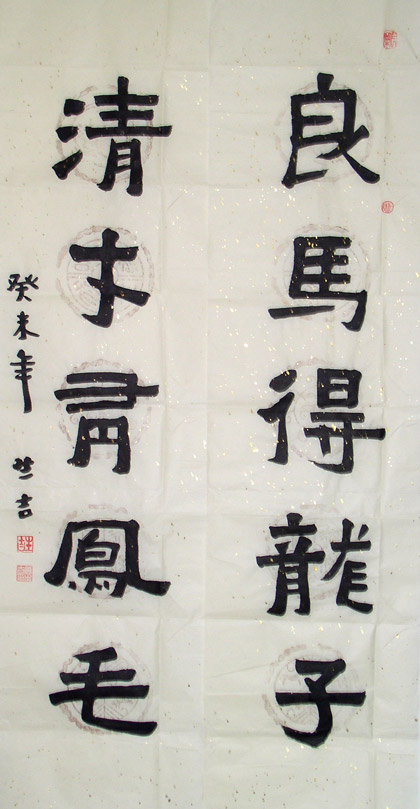 良馬得龍子
清才有鳳毛
癸未年
吉